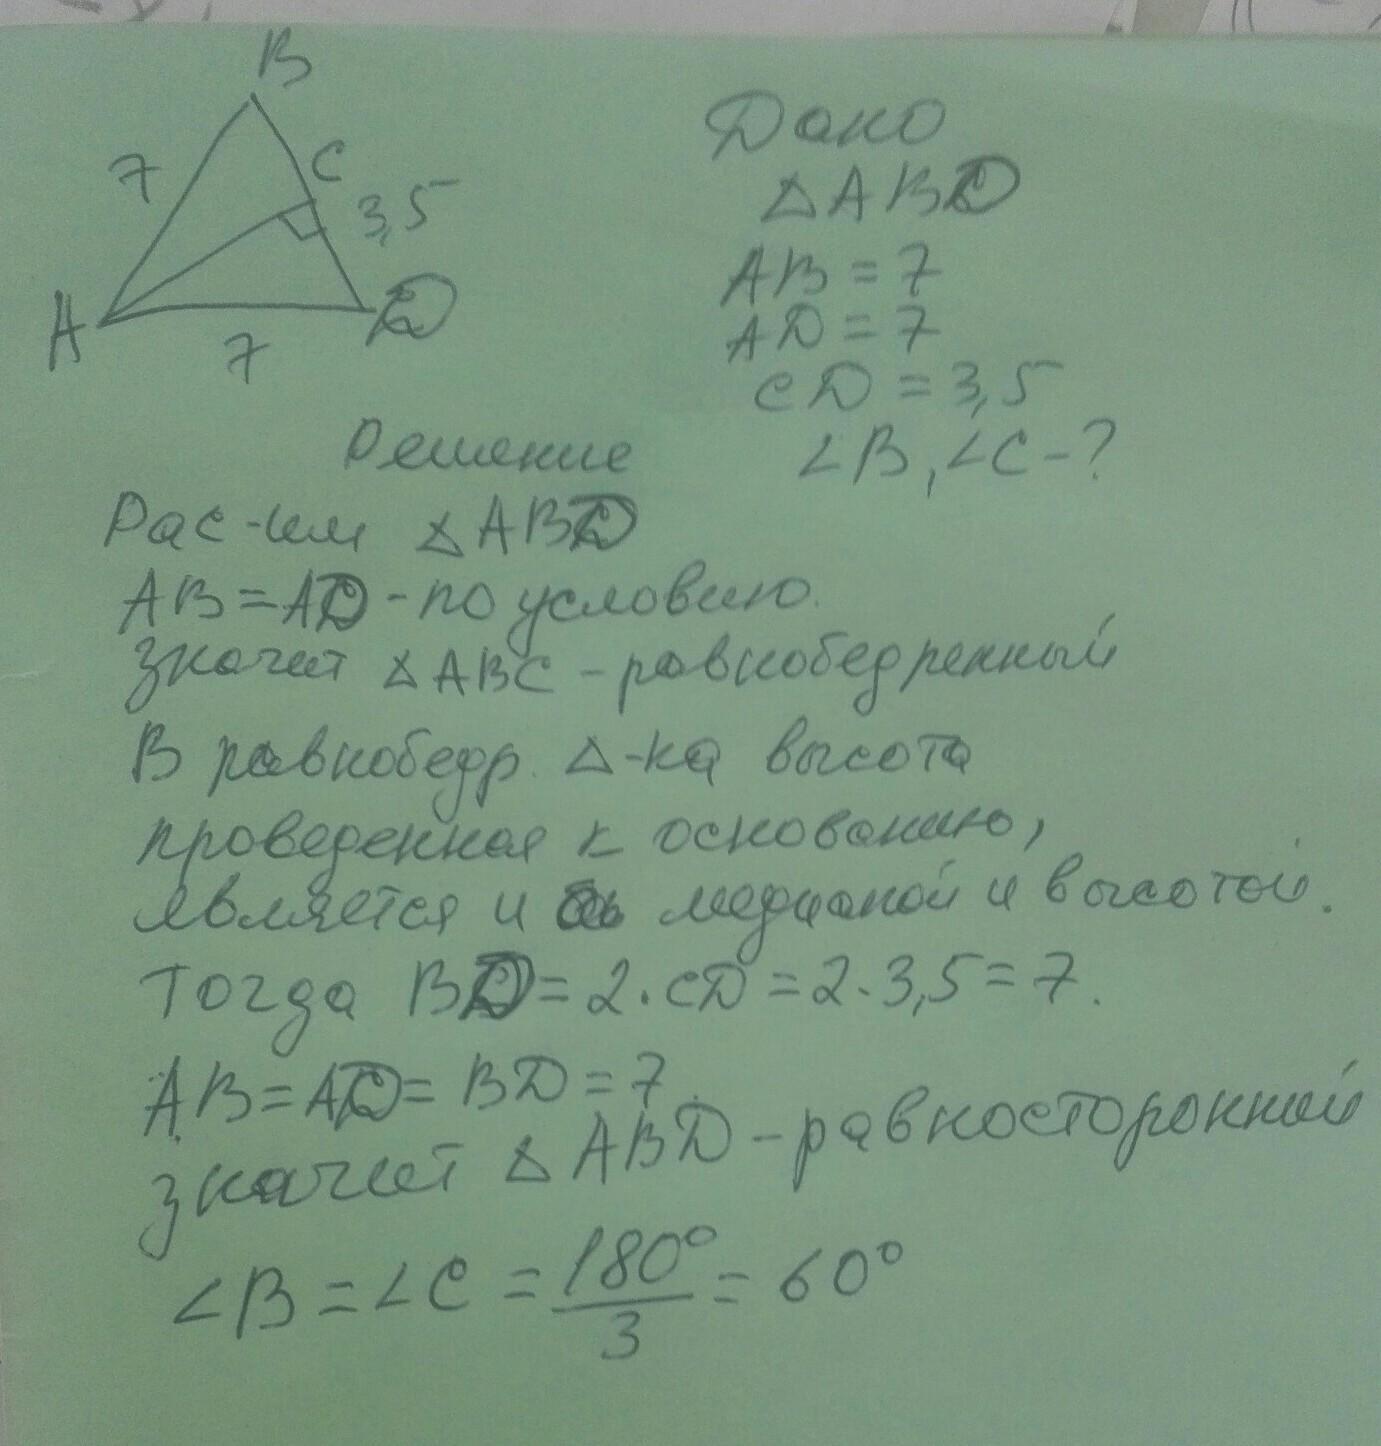 B
7
C
3,5
A
7
D
Дано
△ABD
AB = 7
AD = 7
CD = 3,5
∠B, ∠C - ?
Решение
Рас-им △ABD
AB = AD - по условию.
Значит △ABC - равнобедренный
В равнобедр. △-ка высота
проведенная к основанию,
является и медианой и высотой.
Тогда BD = 2 · CD = 2 · 3,5 = 7.
AB = AD = BD = 7.
Значит △ABD - равносторонний
∠B = ∠C = 180° / 3 = 60°